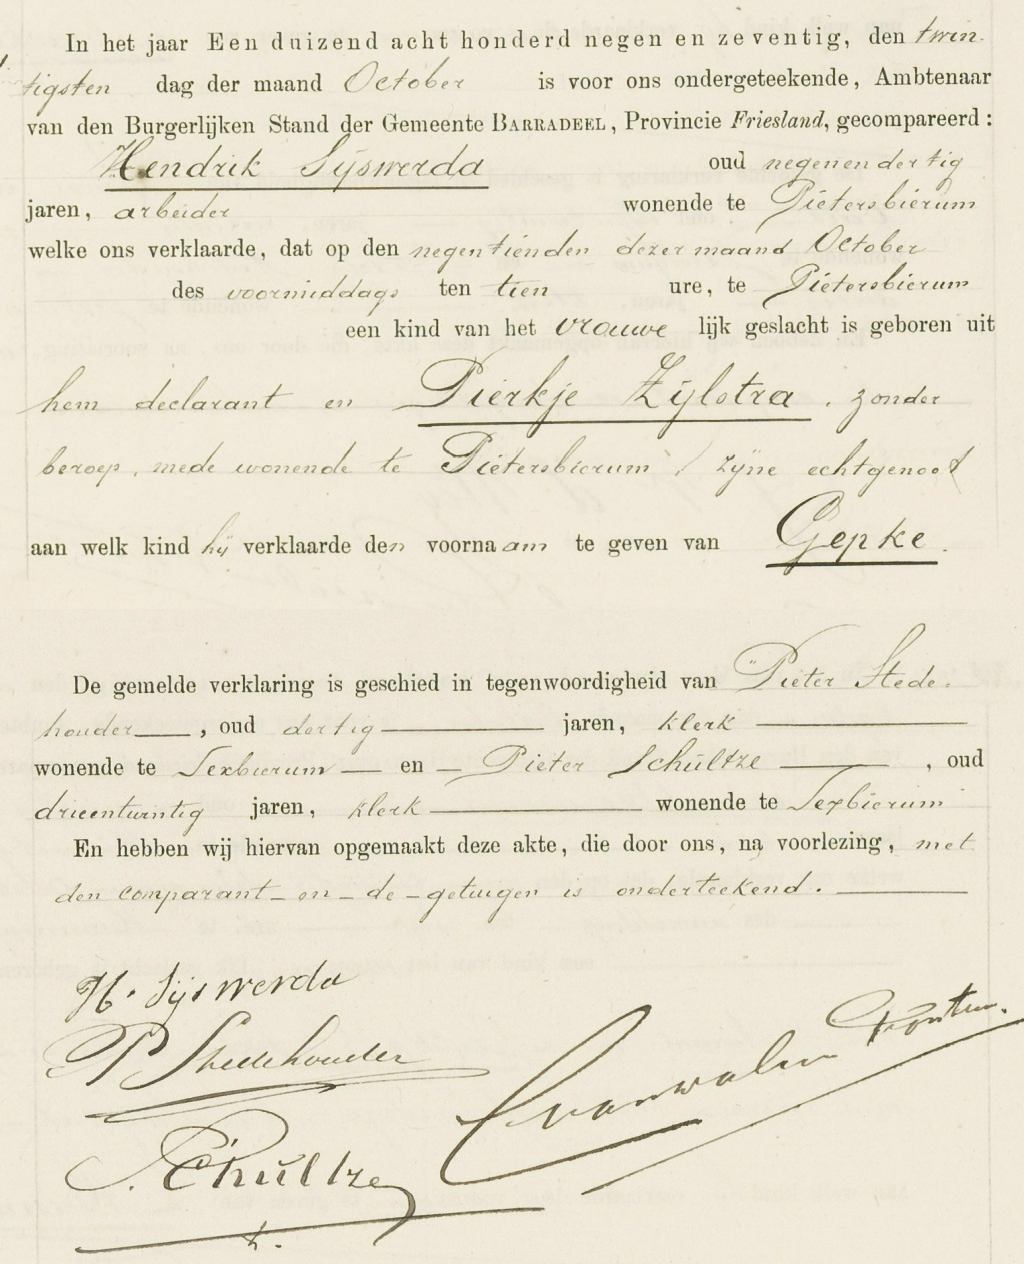 In het jaar Een duizend acht honderd negen en zeventig, den twin-
tigsten dag der maand October is voor ons ondergeteekende, Ambtenaar
van den Burgerlijken Stand der Gemeente BARRADEEL, Provincie Friesland, gecompareerd:
Hendrik Sijswerda oud negenendertig
jaren, arbeider wonende te Pietersbierum
welke ons verklaarde, dat op den negentienden dezer maand October
des voormiddags ten tien ure, te Pietersbierum
een kind van het vrouwe lijk geslacht is geboren uit
hem declarant en Pierkje Zijlstra, zonder
beroep, mede wonende te Pietersbierum, zijne echtgenoot
aan welk kind hij verklaarde den voornaam te geven van Gepke.
De gemelde verklaring is geschied in tegenwoordigheid van Pieter Stede-
houder, oud dertig jaren, klerk
wonende te Sexbierum en Pieter Schültze, oud
drieentwintig jaren, klerk wonende te Sexbierum
En hebben wij hiervan opgemaakt deze akte, die door ons, na voorlezing, met
den comparant en de getuigen is onderteekend.
H. Sijswerda
P Stedehouder
P. Schültze